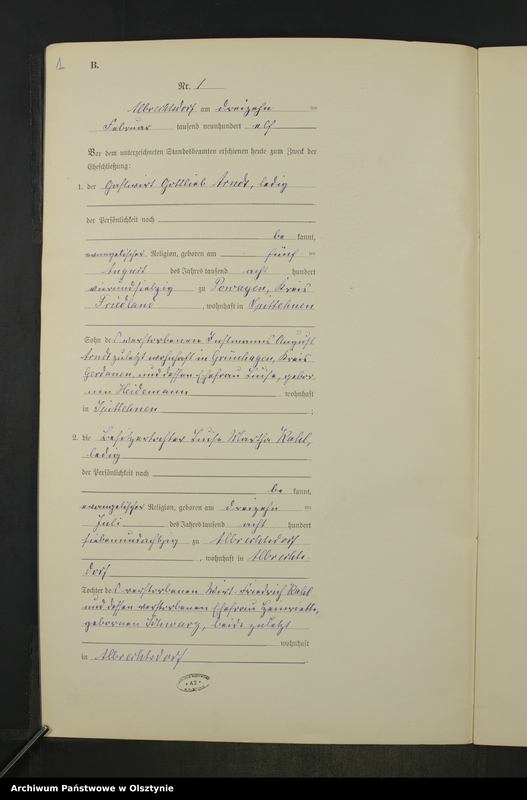 1
B.
Nr. 1
Albrechtsdorf am dreizehn ten
Februar tausend neunhundert elf
Vor dem unterzeichneten Standesbeamten erschienen heute zum Zweck der
Eheschließung:
1. der Gastwirt Gottlieb Arndt, ledig
der Persönlichkeit nach
be kannt,
evangelischer Religion, geboren am fünf ten
August des Jahres tausend acht hundert
vierundsiebzig zu Powayen, Kreis
Friedland, wohnhaft in Spittehnen
Sohn des verstorbenen Instmanns August
Arndt zuletzt wohnhaft in Grünhagen, Kreis
Gerdauen, und dessen Ehefrau Luise, gebor-
nen Heidemann wohnhaft
in Spittehnen ;
2. die Besitzertochter Luise Martha Kahl,
ledig
der Persönlichkeit nach
be kannt,
evangelischer Religion, geboren am dreizehn ten
Juli des Jahres tausend acht hundert
siebenundachtzig zu Albrechtsdorf
, wohnhaft in Albrechts-
dorf
Tochter des verstorbenen Wirt Friedrich Kahl
und dessen verstorbenen Ehefrau Henriette,
gebornen Schwarz, beide zuletzt
wohnhaft
in Albrechtsdorf .
Archiwum Państwowe w Olsztynie